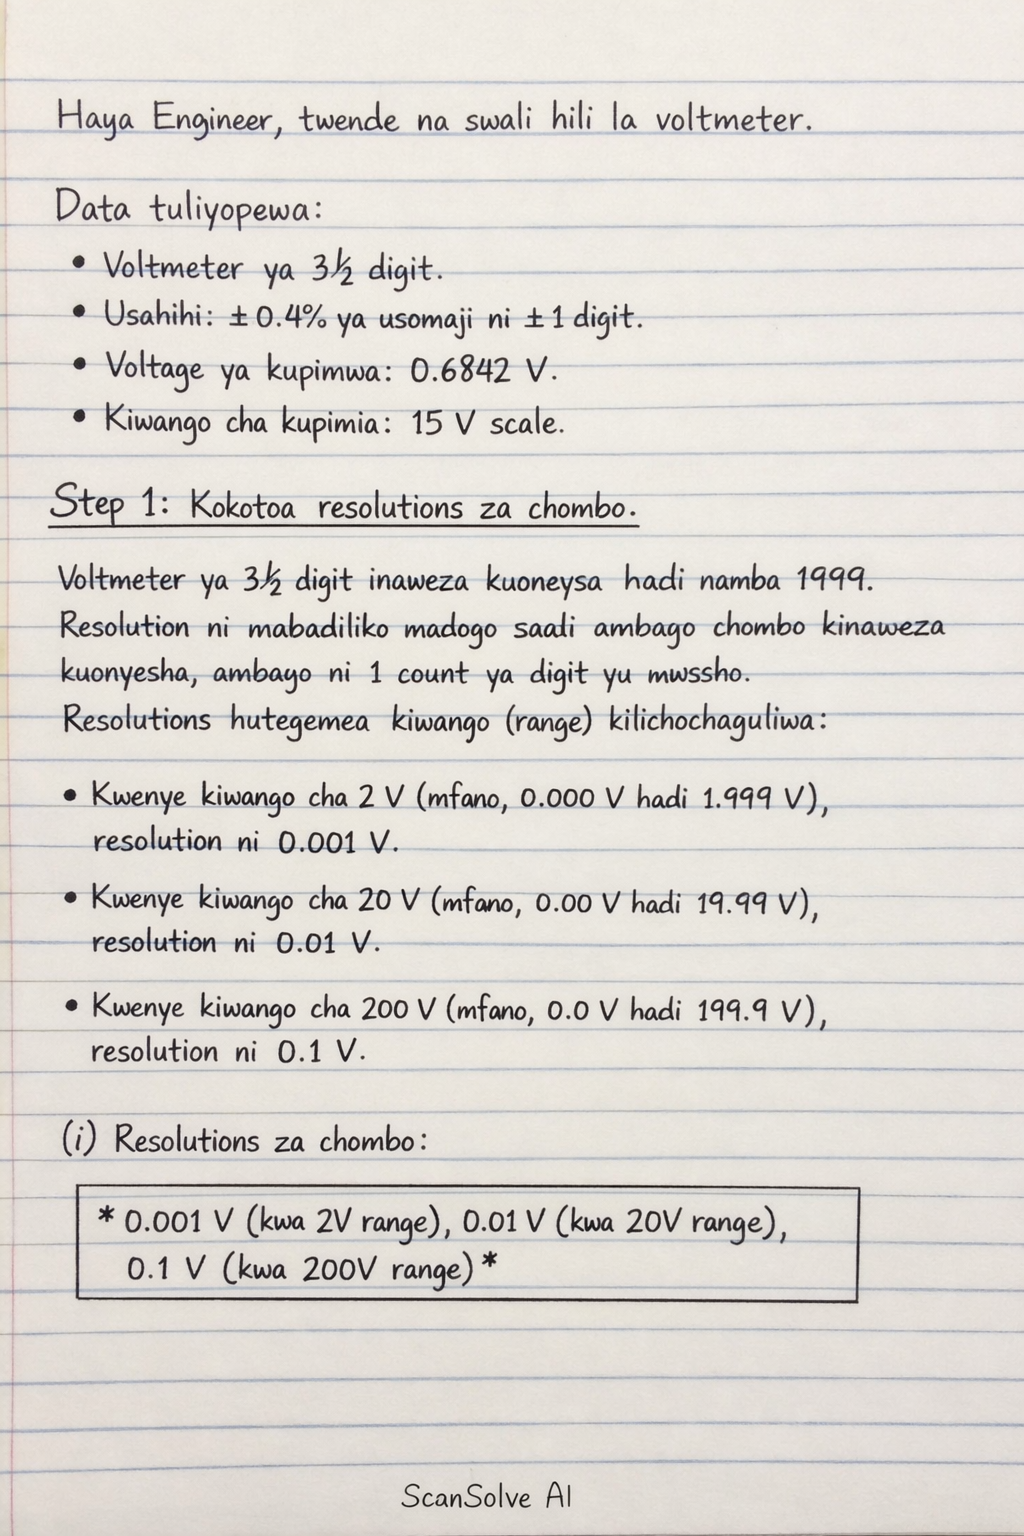 Haya Engineer, twende na swali hili la voltmeter.
Data tuliyopewa:
• Voltmeter ya 3½ digit.
• Usahihi: ± 0.4% ya usomaji ni ± 1 digit.
• Voltage ya kupimwa: 0.6842 V.
• Kiwango cha kupimia: 15 V scale.
Step 1: Kokotoa resolutions za chombo.
Voltmeter ya 3½ digit inaweza kuoneysa hadi namba 1999.
Resolution ni mabadiliko madogo saali ambago chombo kinaweza
kuonyesha, ambago ni 1 count ya digit yu mwssho.
Resolutions hutegemea kiwango (range) kilichochaguliwa:
• Kwenye kiwango cha 2 V (mfano, 0.000 V hadi 1.999 V),
resolution ni 0.001 V.
• Kwenye kiwango cha 20 V (mfano, 0.00 V hadi 19.99 V),
resolution ni 0.01 V.
• Kwenye kiwango cha 200 V (mfano, 0.0 V hadi 199.9 V),
resolution ni 0.1 V.
(i) Resolutions za chombo:
* 0.001 V (kwa 2V range), 0.01 V (kwa 20V range),
0.1 V (kwa 200V range) *
ScanSolve AI